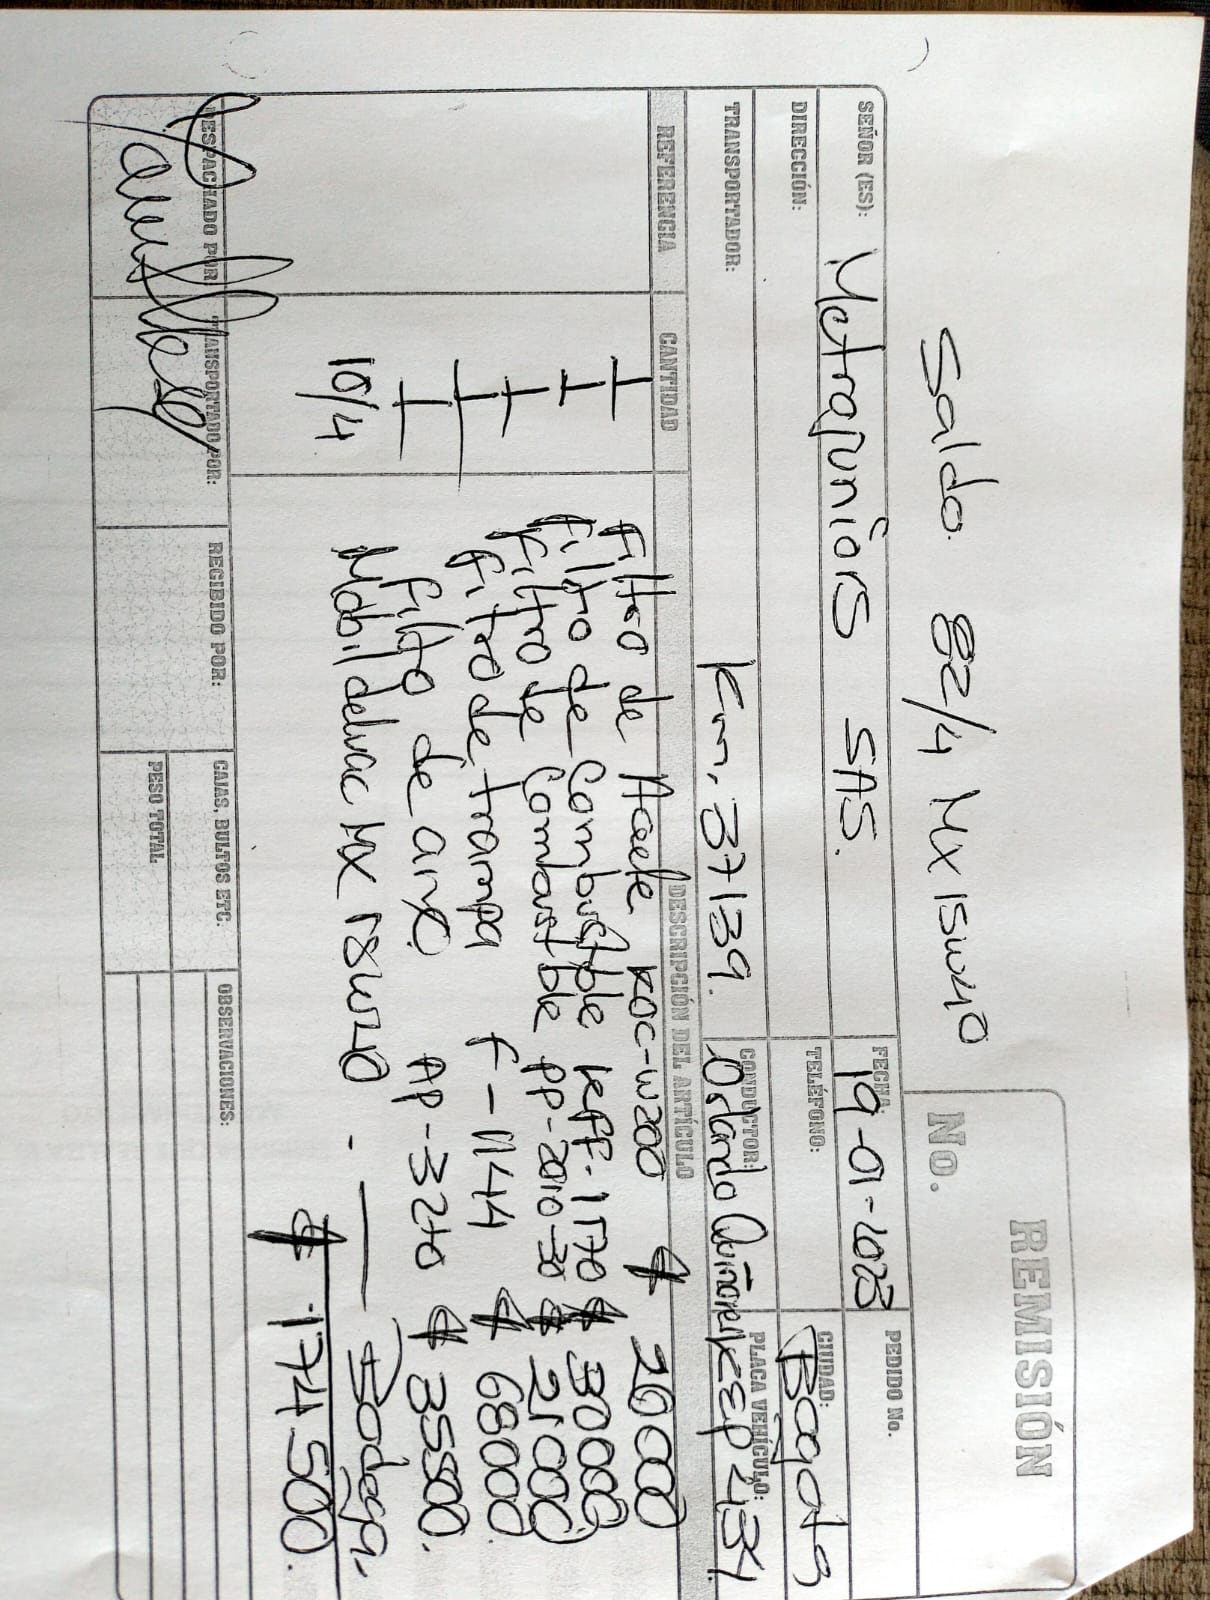 Saldo 82/4 MX 15w40
REMISIÓN
No.
SEÑOR (ES): Metrajuniors SAS.
FECHA: 19-01-2023
PEDIDO No.
DIRECCIÓN:
TELÉFONO:
CIUDAD: Bogota
TRANSPORTADOR: Km, 37139.
CONDUCTOR: Orlando
PLACA VEHÍCULO: 434
REFERENCIA CANTIDAD DESCRIPCIÓN DEL ARTÍCULO
1 Filtro de Aceite KOC-W200 $ 20000
1 Filtro de Combustible KFF-1770 $ 30000
1 Filtro de Combustible PP-2010-30 $ 21000
1 Filtro de trampa F-1144 $ 68000
1 Filtro de aire AP-3240 $ 35500.
10/4 Mobil delvac MX 15W40 - — Bodega.
$ 174 500.
DESPACHADO POR:
TRANSPORTADO POR:
RECIBIDO POR:
CAJAS, BULTOS ETC.
OBSERVACIONES:
PESO TOTAL